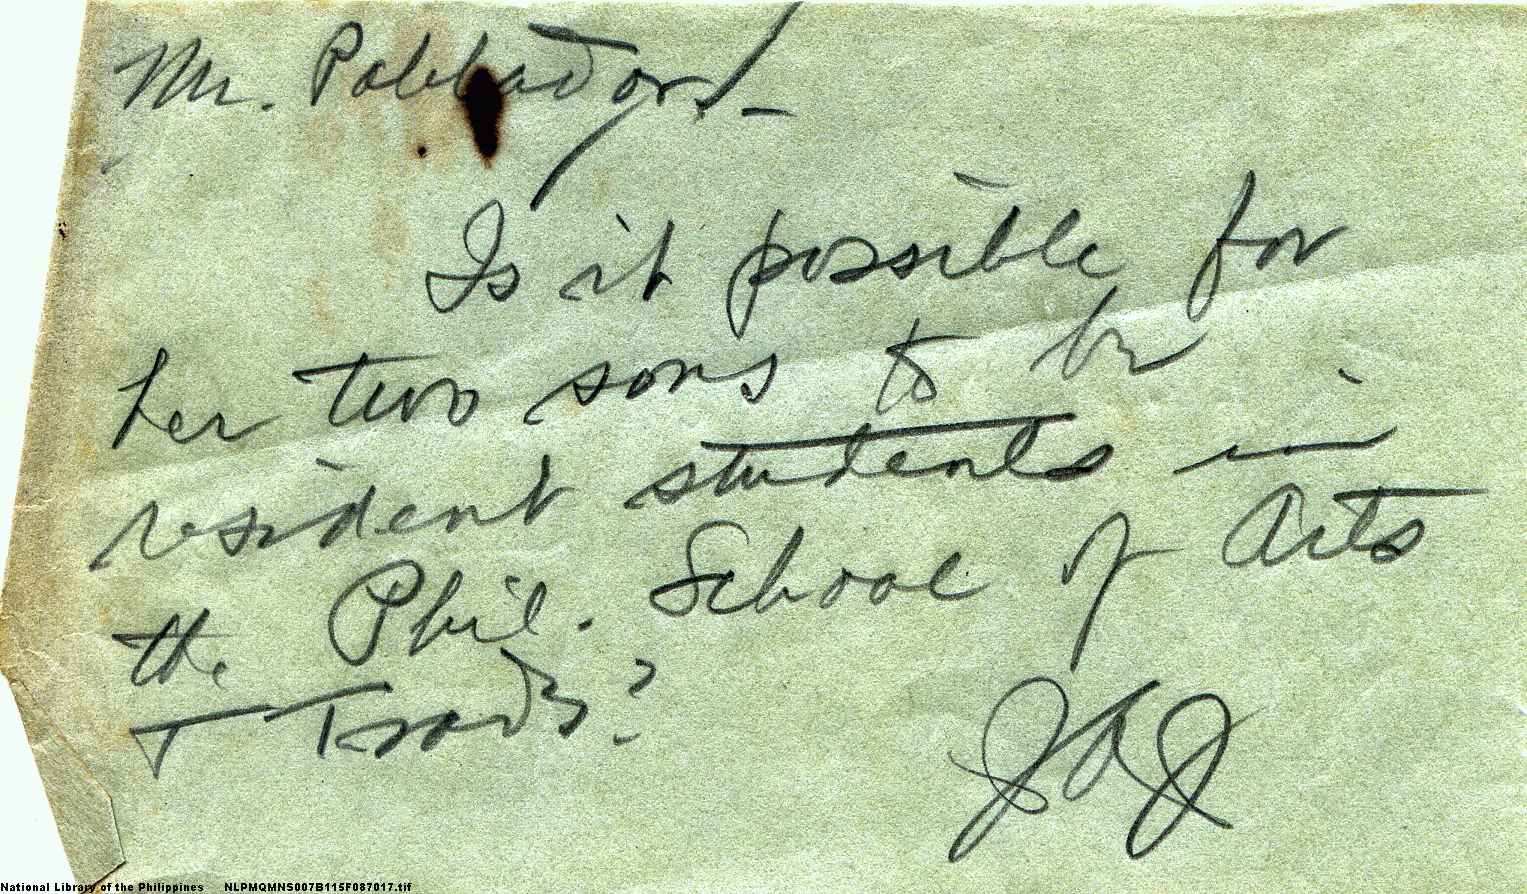 Mr. Pablador. -
Is it possible for
her two sons to be
resident students in
the Phil. School of Arts
+ Trades?
National Library of the Philippines NLPMQMNS007B115F087017.tif